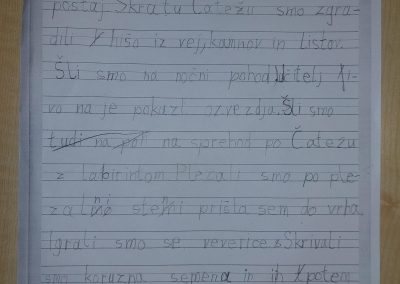 postaj Škratu Čatežu smo zgra-
dili hišo iz vej, kamnov in listov.
Šli smo na nočni pohod. Učitelj
vo na je pokazl ozvezdja. Šli smo
tudi na poti na sprehod po Čatežu
z labirintom. Plezali smo po ple-
zalni steni prišla sem do vrha
Igrali smo se veverice. Skrivali
smo koruzna semena in jih potem